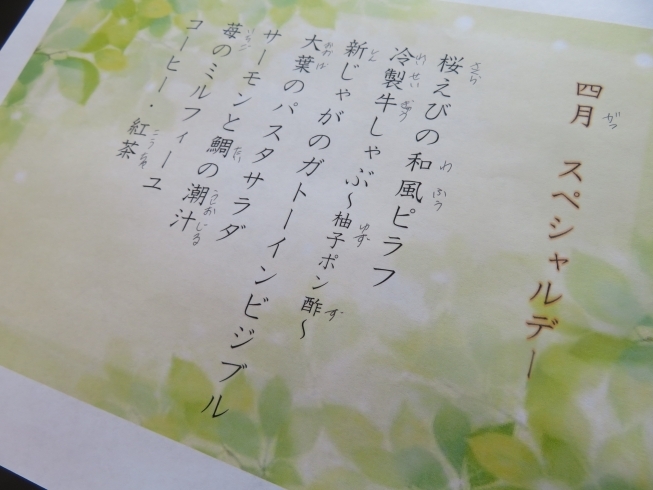 四月 スペシャルデー
桜えびの和風ピラフ
冷製牛しゃぶ～柚子ポン酢～
新じゃがのガトーインビジブル
大葉のパスタサラダ
サーモンと鯛の潮汁
苺のミルフィーユ
コーヒー・紅茶